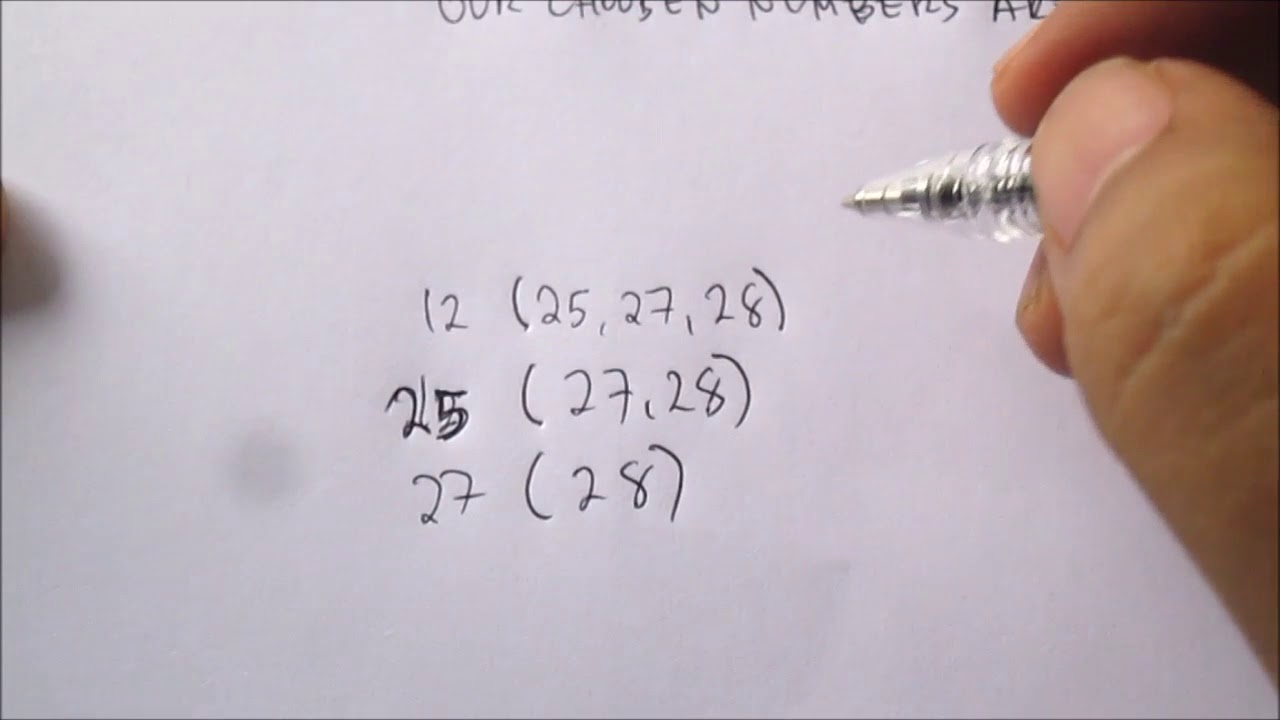 OUR CHOOSEN NUMBERS AR
12 (25, 27, 28)
25 (27, 28)
27 (28)